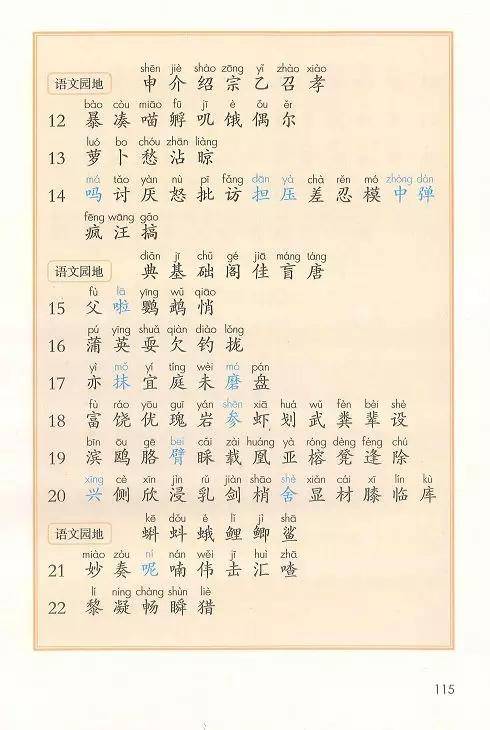 shēn jiè shào zōng yǐ zhào xiào
语文园地 申 介 绍 宗 乙 召 孝
bào còu miāo fū jī è ǒu ěr
12 暴 凑 喵 孵 叽 饿 偶 尔
luó bo chóu zhān liàng
13 萝 卜 愁 沾 晾
má tǎo yàn nù pī fǎng dān yā chà rěn mó zhòng dàn
14 吗 讨 厌 怒 批 访 担 压 差 忍 模 中 弹
fēng wāng gǎo
疯 汪 搞
diǎn jī chǔ gé jiā máng táng
语文园地 典 基 础 阁 佳 盲 唐
fù lā yīng wǔ qiāo
15 父 啦 鹦 鹉 悄
pú yīng shuǎ qiàn diào lǒng
16 蒲 英 耍 欠 钓 拢
yì mǒ yí tíng wèi mó pán
17 亦 抹 宜 庭 未 磨 盘
fù ráo yōu guī yán shēn xiā huá wǔ fèn bèi shè
18 富 饶 优 瑰 岩 参 虾 划 武 粪 辈 设
bīn ōu gē bei cǎi zài huáng yà róng dèng féng chú
19 滨 鸥 胳 臂 睬 载 凰 亚 榕 凳 逢 除
xīng cè xīn jìn rǔ jiàn shāo shè xiǎn cái xī lín kù
20 兴 侧 欣 浸 乳 剑 梢 舍 显 材 膝 临 库
kē dǒu é lǐ jì shā
语文园地 蝌 蚪 蛾 鲤 鲫 鲨
miào zòu ní nán wěi jī huì zhā
21 妙 奏 呢 喃 伟 击 汇 喳
lí níng chàng shùn liè
22 黎 凝 畅 瞬 猎
115